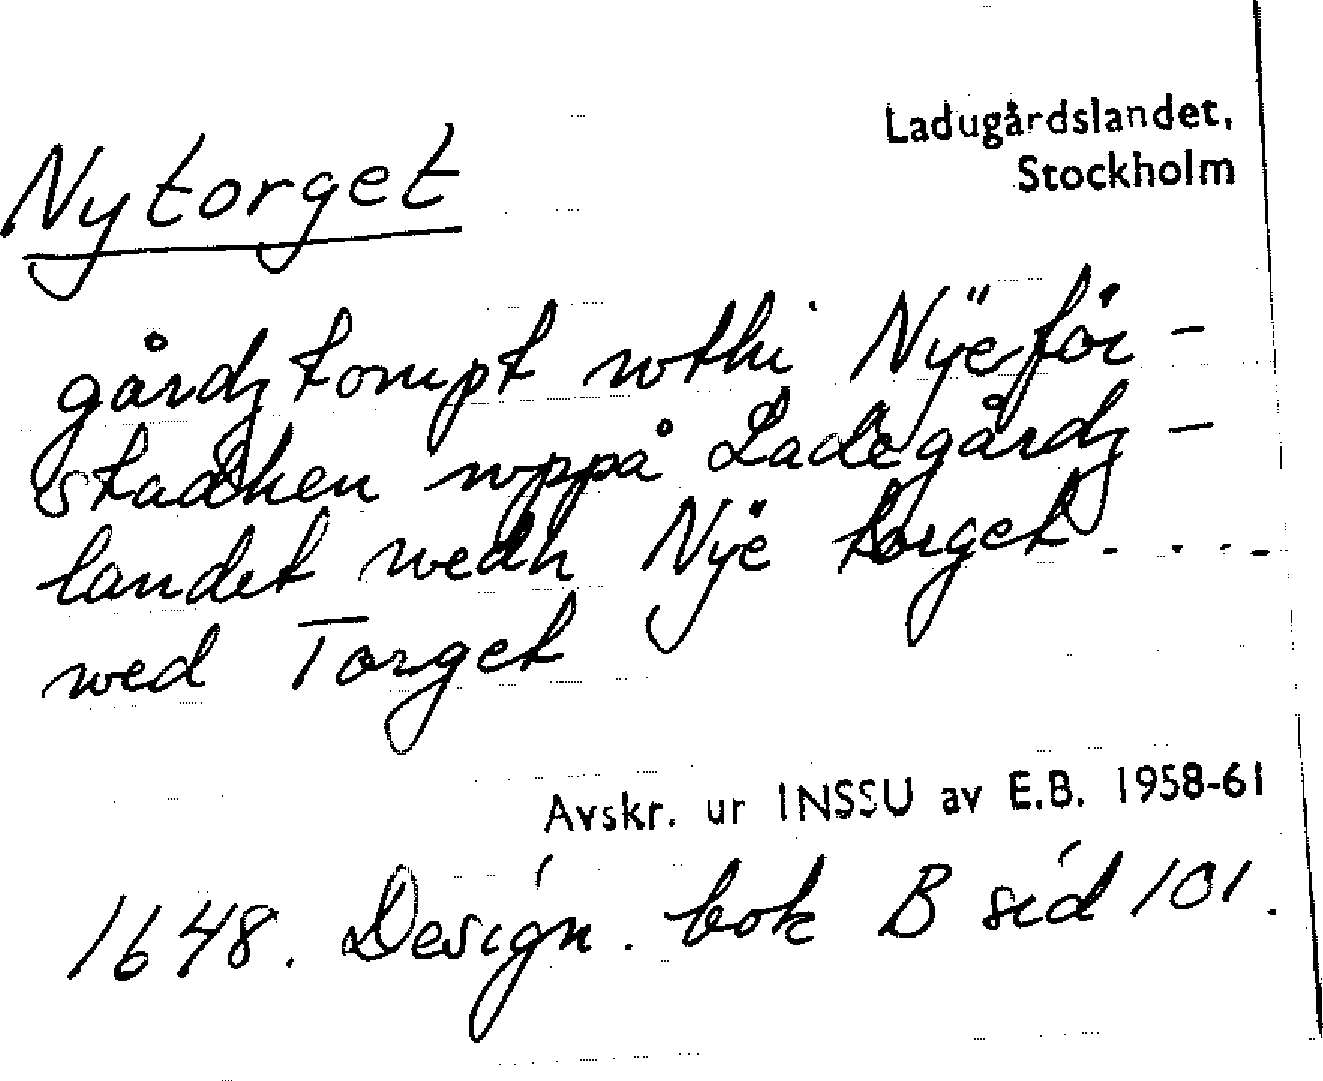 Ladugårdslandet,
Stockholm
Nytorget
gårdz tompt wthi Nyë för-
stadhen wppå Ladegårdz-
landet wedh Nyë torget....
wed Torget
Avskr. ur INSSU av E.B. 1958-61
1648. Design. bok B sid 101.